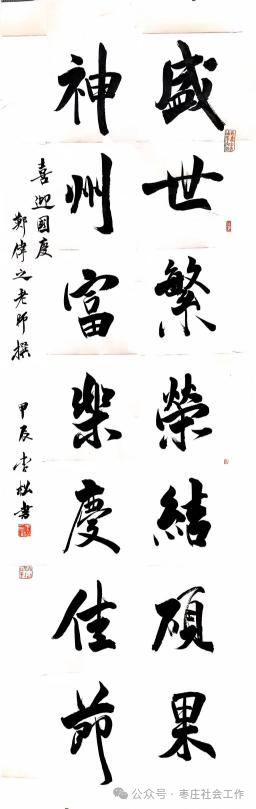 盛世繁榮結碩果
神州富樂慶佳節
喜迎國慶
鄭偉之老師撰
甲辰 李松書
公众号 · 枣庄社会工作